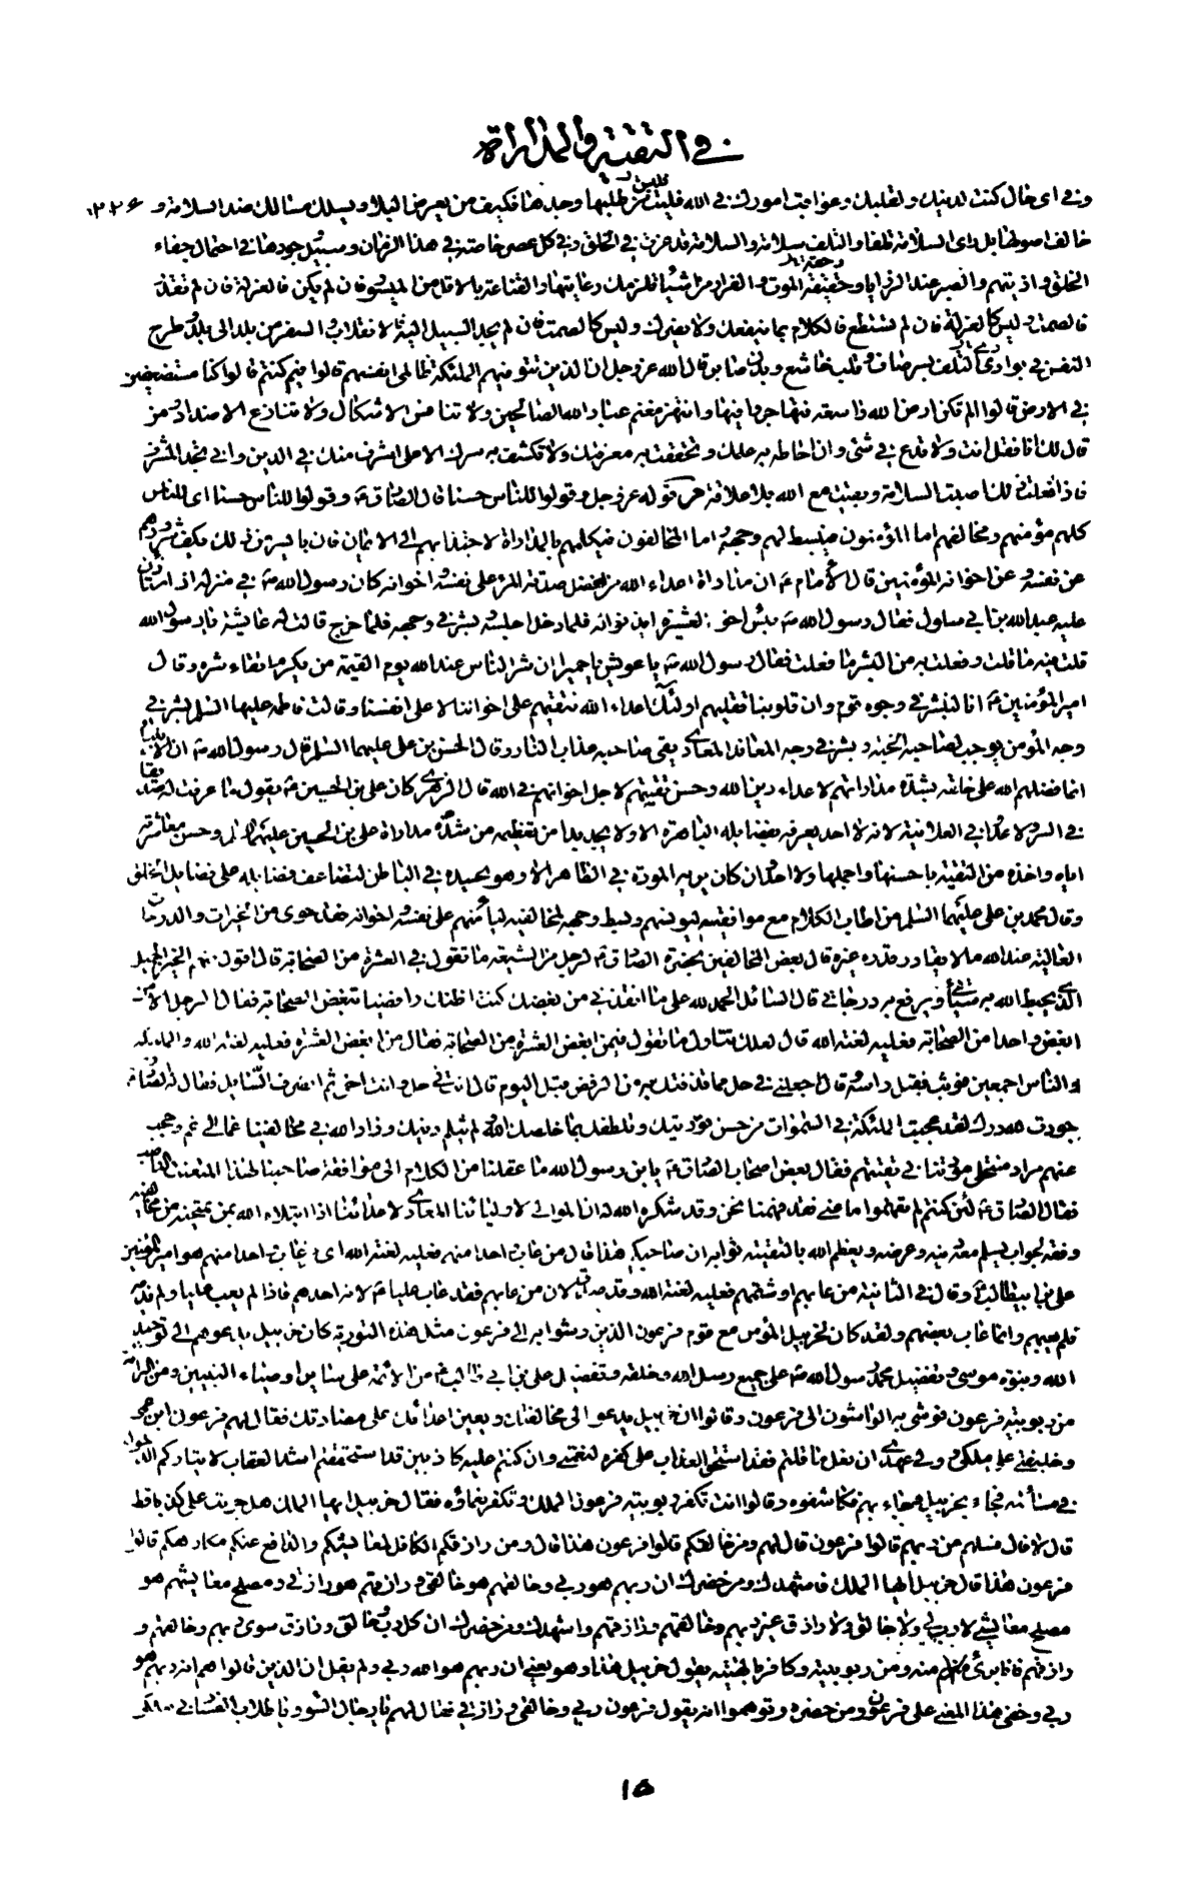 في التقية والمداراة
وفي اى حال كنت لدينك ولقلبك وعواقب امورك في الله فليت من طلبها وجدها فكيف من يعرض للبلاء ويسلك مسالك ضد السلامة و ٢٢٦
خالف اصولها بل راى السلامة تلفا والتلف سلامة والسلامة قد عزت في الخلق في كل عصر خاصة في هذا الزمان وسبيل وجودها في احتمال جفاء
الخلق واذيتهم والصبر عند الرزايا وحقيقة الموت والفرار من اشياء تلزمك رعايتها والقناعة بالاقل من الميسور فان لم يكن فالعزلة فان لم تقدر
فالصمت وليس كالعزلة فان لم تستطع فالكلام بما ينفعك ولا يضرك وليس كالصمت فان لم تجد السبيل اليه فالانقلاب والسفر من بلد الى بلد وطرح
النفس في بوادى التلف بسر صاف وقلب خاشع وبدن صابر قال الله عز وجل ان الذين تتوفيهم الملئكة ظالمى انفسهم قالوا فيم كنتم قالوا كنا مستضعفين
في الارض قالوا الم تكن ارض الله واسعة فتهاجروا فيها وانتهز مغنم عباد الله الصالحين ولا تنافس الاشكال ولا تنازع الاضداد ومن
قال لك انا فقل انت ولا تدع في شئ وان احاط به علمك وتحققت به معرفتك ولا تكشف سرك الا على اشرف منك في الدين وانى تجد الشرف
فاذا فعلت ذلك اصبت السلامة وبقيت مع الله بلا علاقة قوله عز وجل وقولوا للناس حسنا قال الصادق ع وقولوا للناس حسنا اى للناس
كلهم مؤمنهم ومخالفهم اما المؤمنون فيبسط لهم وجهه واما المخالفون فيكلمهم بالمداراة لاجتذابهم الى الايمان فان بايسر من ذلك يكف شرورهم
عن نفسه وعن اخوانه المؤمنين قال الامام ع ان مداراة اعداء الله من افضل صدقة المرء على نفسه واخوانه كان رسول الله ص في منزله اذ استاذن
عليه عبد الله بن ابى سلول فقال رسول الله ص بئس اخو العشيرة ايذنوا له فلما دخل اجلسه وبشر في وجهه فلما خرج قالت له عايشة يا رسول الله
قلت فيه ما قلت وفعلت به من البشر ما فعلت فقال رسول الله ص يا عويش يا حميرا ان شر الناس عند الله يوم القيمة من يكرم اتقاء شره وقال
امير المؤمنين ع انا لنبشر في وجوه قوم وان قلوبنا تقليهم اولئك اعداء الله نتقيهم على اخواننا لا على انفسنا وقالت فاطمة عليها السلم البشر في
وجه المؤمن يوجب لصاحبه الجنة وبشر في وجه المعاند المعادى يقى صاحبه عذاب النار وقال الحسن بن على عليهما السلم قال رسول الله ص ان الانبياء
انما فضلهم الله على خلقه بشدة مداراتهم لاعداء دين الله وحسن تقيتهم لاجل اخوانهم في الله قال الزهرى كان على بن الحسين ع يقول ما عرفت له صديقا
في السر ولا عدوا في العلانية لانه لا احد يعرفه بفضايله الباهرة الا ولا يجد بدا من تعظيمه من شدة مداراة على بن الحسين عليهما السلم وحسن معاشرته
اياه واخذه من التقية باحسنها واجملها ولا احد وان كان يريه المودة في الظاهر الا وهو يحسده في الباطن لتضاعف فضايله على فضايل الخلق
وقال محمد بن على عليهما السلم من اطاب الكلام مع موافقيه ليؤنسهم وبسط وجهه لمخالفيه ليأمنهم على نفسه واخوانه فقد حوى من الخيرات والدرجات
العالية عند الله ما لا يقادر قدره غيره قال بعض المخالفين بحضرة الصادق ع لرجل من الشيعة ما تقول في العشرة من الصحابة قال اقول فيهم الخير الجميل
الذى يحط الله به سيئاتى ويرفع به درجاتى قال السائل الحمد لله على ما انقذنى من بغضك كنت اظنك رافضيا تبغض الصحابة فقال الرجل الا من
ابغض واحدا من الصحابة فعليه لعنة الله قال لعلك تتأول ما تقول فيمن ابغض العشرة من الصحابة فقال من ابغض العشرة فعليه لعنة الله والملئكة
والناس اجمعين فوثب فقبل راسه وقال اجعلنى في حل مما قذفتك به من الرفض قبل اليوم قال انت في حل وانت اخى ثم انصرف السائل فقال له الصادق ع
جودت لله درك لقد عجبت الملئكة في السموات من حسن توريتك وتلطفك بما خلصك الله ولم تثلم دينك وزاد الله في مخالفينا غما الى غم وحجب
عنهم مراد منتحلى مودتنا في تقيتهم فقال بعض اصحاب الصادق ع يا بن رسول الله ما عقلنا من الكلام الى موافقة صاحبنا لهذا المتعنت الناصب
فقال الصادق ع لئن كنتم لم تفهموا ما عنى فقد فهمنا نحن وقد شكره الله له ان الموالى لاوليائنا المعادى لاعدائنا اذا ابتلاه الله بمن يمتحنه من مخالفيه
وفقه لجواب يسلم معه دينه وعرضه ويعظم الله بالتقية ثوابه ان صاحبكم هذا قال من عاب احدا منهم فعليه لعنة الله اى من عاب احدا منهم هو امير المؤمنين
على بن ابيطالب ع وقال في الثانية من عابهم او شتمهم فعليه لعنة الله وقد صدق لان من عابهم فقد عاب عليا ع لانه احدهم فاذا لم يعب عليا ولم يذمه
فلم يعبهم وانما عاب بعضهم ولقد كان لخربيل المؤمن مع قوم فرعون الذين وشوا به الى فرعون مثل هذه التورية كان خربيل يدعوهم الى توحيد
الله ونبوة موسى وتفضيل محمد رسول الله ص على جميع رسل الله وخلقه وتفضيل على بن ابى طالب ع من الائمة على ساير اوصياء النبيين ومن البراءة
من ربوبية فرعون فوشى به الواشون الى فرعون وقالوا ان خربيل يدعو الى مخالفتك ويعين اعدائك على مضادتك فقال لهم فرعون ابن عمى
وخليفتى على ملكى وولى عهدى ان فعل ما قلتم فقد استحق العذاب على كفره لنعمتى وان كنتم عليه كاذبين قد استحققتم اشد العقاب لايثاركم الدخول
في مسائته فجاء بخربيل وجاء بهم فكاشفوه وقالوا انت تكفر ربوبية فرعون الملك وتكفر نعماؤه فقال خربيل ايها الملك هل جربت على كذبا قط
قال لا قال فسلهم من ربهم قالوا فرعون قال لهم ومن خالقكم قالوا فرعون هذا قال ومن رازقكم الكافل لمعايشكم والدافع عنكم مكارهكم قالوا
فرعون هذا قال خربيل ايها الملك فاشهدك ومن حضرك ان ربهم هو ربى وخالقهم هو خالقى ورازقهم هو رازقى ومصلح معايشهم هو
مصلح معايشى لا رب لى ولا خالق ولا رازق غير ربهم وخالقهم ورازقهم واشهدك ومن حضرك ان كل رب وخالق ورازق سوى ربهم وخالقهم و
رازقهم فانا برئ منه ومن ربوبيته وكافر بالهيته يقول خربيل هذا وهو يعنى ان ربهم هو الله ربى ولم يقل ان الذين قالوا هم انه ربهم هو
ربى وخفى هذا المعنى على فرعون ومن حضره وتوهموا انه يقول فرعون ربى وخالقى ورازقى فقال لهم يا رجال السوء ويا طلاب الفساد في ملكى
١٥